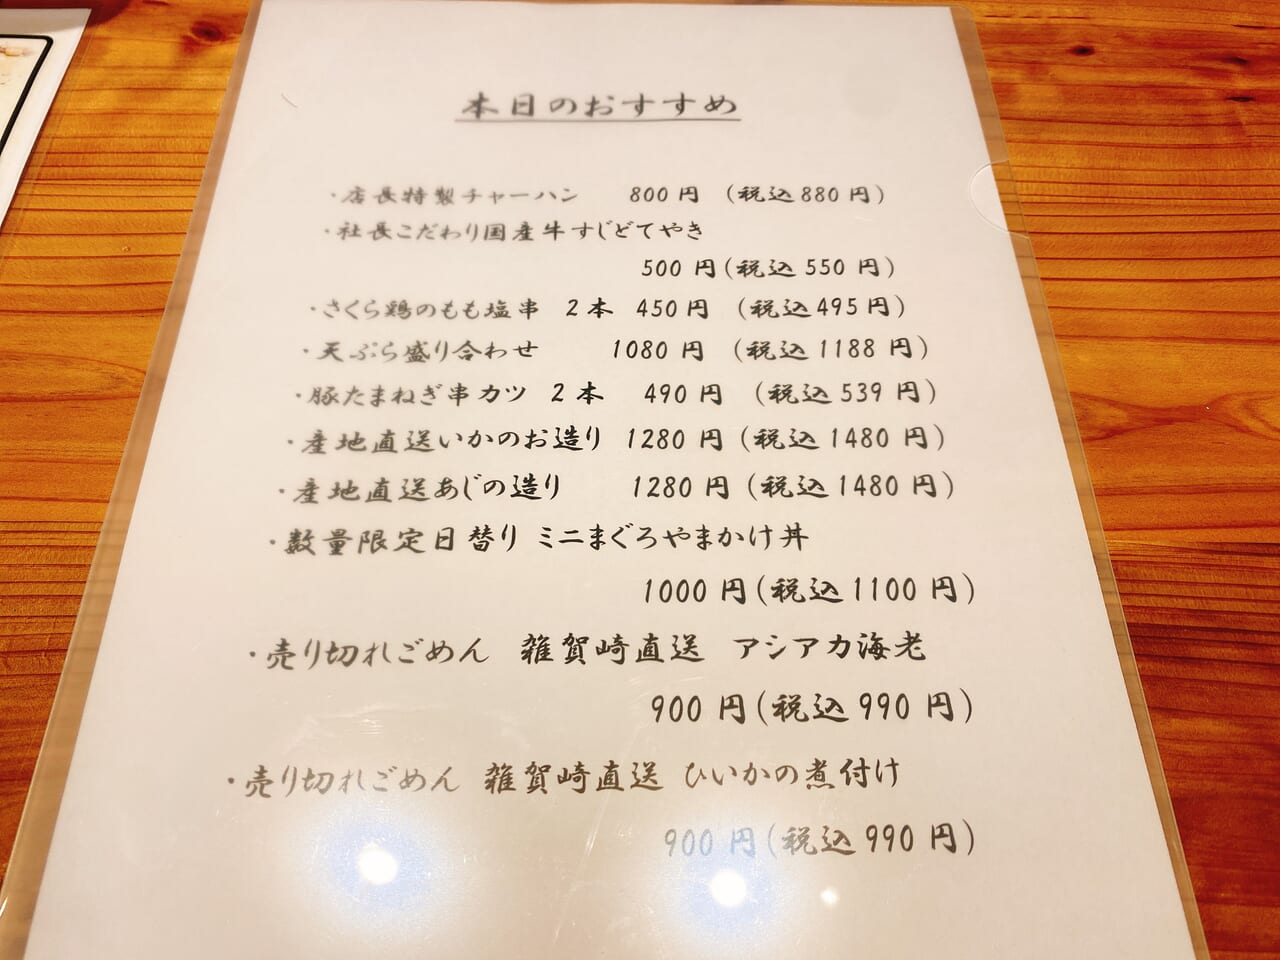 本日のおすすめ
・店長特製チャーハン　800円　(税込880円)
・社長こだわり国産牛すじどてやき
500円(税込550円)
・さくら鶏のもも塩串　2本　450円　(税込495円)
・天ぷら盛り合わせ　1080円　(税込1188円)
・豚たまねぎ串カツ　2本　490円　(税込539円)
・産地直送いかのお造り　1280円　(税込1480円)
・産地直送あじの造り　1280円　(税込1480円)
・数量限定日替り ミニまぐろやまかけ丼
1000円(税込1100円)
・売り切れごめん　雑賀崎直送　アシアカ海老
900円(税込990円)
・売り切れごめん　雑賀崎直送 ひいかの煮付け
900円(税込990円)